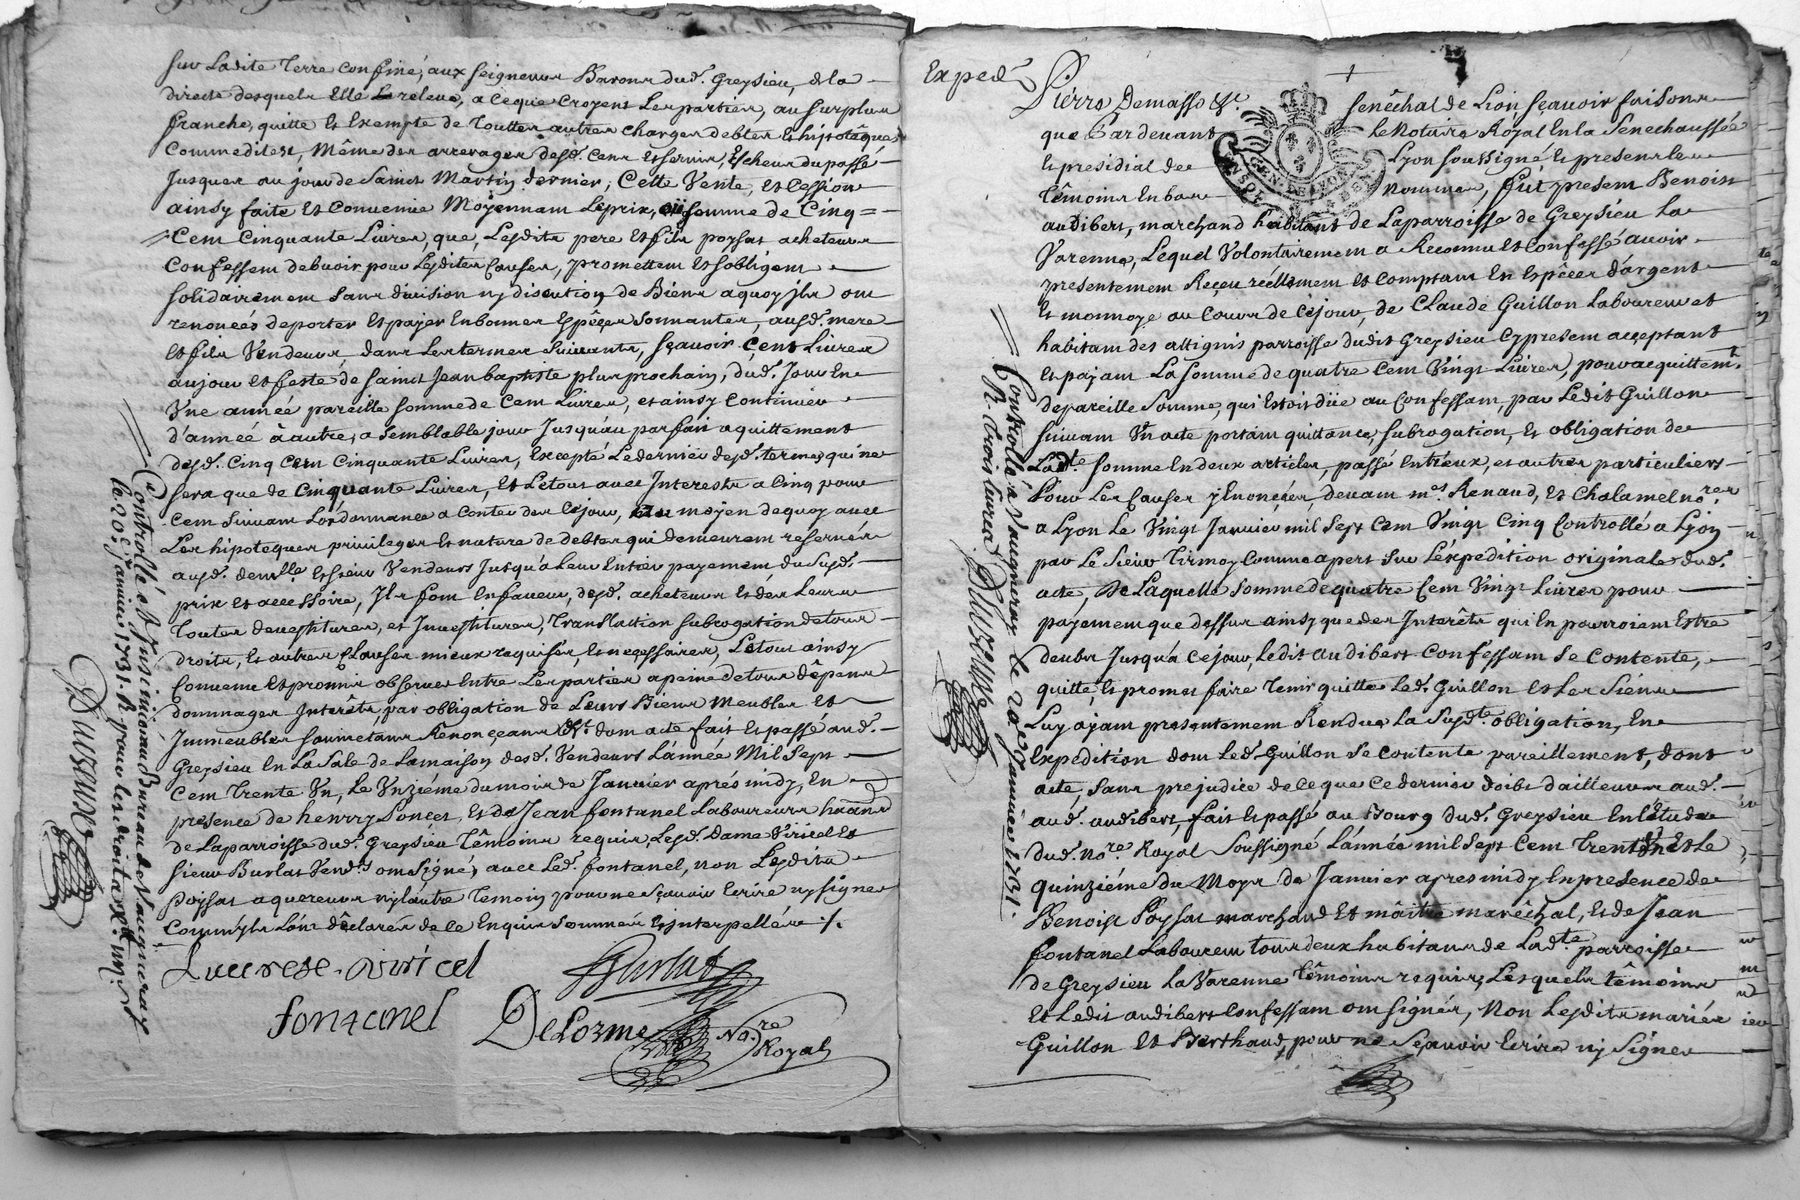 sur Ladite Terre confiné, aux seigneurs Barons dud. Greysieu, de la
directe desquels Elle Releve, a ceque Croyent Les parties, au surplus
franche, quitte Et Exempte de Toutter autres charges debtes Et hipoteques
Commedites, Même des arrerages desd. Cens Et servis, Escheus du passé
Jusques au jour de Saint Martin dernier, Cette Vente, Et Cession
ainsy faite Et Convenüe Moÿennant Leprix, somme de Cinq =
Cent Cinquante Livres, que, Lesdits pere Et fils poysat acheteurs
Confessent debvoir pour Lesdites Causes, promettent Et sobligent
solidairement sans division ny discution de Biens aquoy jls ont
renoncés deporter Et payer En bonnes Espêces sonnantes, ausd. mere
Et fils Vendeurs, dans Les termes suivants, sçavoir Cent Livres
aujour Et feste de Saint Jean baptiste plus prochain, dud. Jour En
Vne année pareille somme de Cent Livres, et ainsy Continuer
d'année à autre, a semblable jour Jusquau parfait aquittement
desd. Cinq Cent Cinquante Livres, Excepté Le dernier desd. termes qui ne
sera que de Cinquante Livres, Et Letout avec Interests a Cinq pour
Cent suivant Lordonnance a Conter des Cejour, au moyen dequoy avec
Les hipoteques privileges Et nature de debtes qui demeurent réservés
ausd. demlle Et sieur Vendeurs Jusqu'à Leur Entier payement, du susd.
prix Et accessoire, Jls font En faveur, desd. acheteurs Et des Leurs
Toutes devestitures, et Investitures, Translation subrogation de tous
droits, Et autres Clauses mieux requises, Et necessaires, Letout ainsy
Convenu Et promis observer Entre Les parties a peine de tous dêpens
dommages Interêts, par obligation de Leurs Biens Meubles Et
Immeubles soumetans Renonçeans &t. dont acte fait Et passé aud.
Greysieu En La Sale de Lamaison desd. Vendeurs L'année Mil Sept
Cent Trente Vn, Le Vnziéme du mois de Janvier aprés midy, En
presence de henrry Poncet, Et de Jean fontanel Laboureurs
de Laparroisse dud. Greysieu Têmoins requis, Lesd. Dame Viricel Et
sieur Burlat Vendrs ont signé, avec Led. fontanel, non Lesdits
Poysat aquereurs nylautre Temoin pour ne sçavoir Ecrire ny signer
Comm'jls L'ont dêclarés de ce Enquis sommés Et Interpellés ./.
Lucrese Viricel
Burlat
fontanel
Delorme No.re Royal
Controllé et Insinué au Bureau de Vaugneray
le 20e. janvier 1731. R. pour les droits
Duzeune
Exped
Pierre Demasso &c. senêchal de Lion sçavoir faisons
que Pardevant Le Notaire Royal En la Senechaussée
Et presidial de Lyon soussigné Et presens les
Têmoins En bas nommés, fut present Benoist
audibert, marchand habitant de Laparroisse de Greysieu La
Varenne, Lequel Volontairement a Reconnu et confessé avoir
presentement Reçeu réellement Et comptant En Espêces d'argent
Et monnoye au Cours de Cejour, de Claude Guillon Laboureur et
habitant des attignis parroisse dudit Greysieu Cy present acceptant
Et payant La somme de quatre Cent Vingt Livres, pour acquittemt.
depareille somme, qui Estoit düe au Confessant, par Ledit Guillon
suivant Vn acte portant quittance, subrogation, Et obligation de
Ladte. somme En deux articles, passé Entr'eux, et autres particuliers
Pour Les Causes y Enonçées, devant mes. Renaud, Et Chalamel nores
a Lyon Le Vingt Janvier mil Sept Cent Vingt Cinq Controllé a Lyon
par Le Sieur Tirmoy Comme apert sur L'expedition originale dud.
acte, De Laquelle somme de quatre Cent Vingt Livres pour
payement que dessus ainsy que des Interêts qui En pourroient Estre
deubs Jusqu'a Cejour Ledit audibert Confessant Se Contente,
quitte, Et promet faire Tenir quitte Led. Guillon Et Les Siens
Luy ajant presentement Rendue La Susdte. obligation, En
Expedition dont Led. Guillon Se Contente pareillement, dont
acte, sans prejudice de ce que ce dernier doibt d'ailleurs aud.
aud. audibert, fait Et passé au Bourg dud. Greysieu En L'êtude
dud. nore. Royal Soussigné L'année mil Sept Cent Trente Vn Et Le
quinziéme du Moys de Janvier apres midy En presence de
Benoist Poysat marchand Et maitre marêchal, Et de Jean
fontanel Laboureur tous deux habitans de Ladte. parroisse
de Greysieu La Varenne Têmoins requis, Lesquels têmoins
Et Ledit audibert Confessant ont signés, Non Lesdits mariés
Guillon Et Berthaud, pour ne Sçavoir Ecrire ny Signer
Controllé a Vaugneray le 20e. Janvier 1731.
R. trois livres
Duzeune